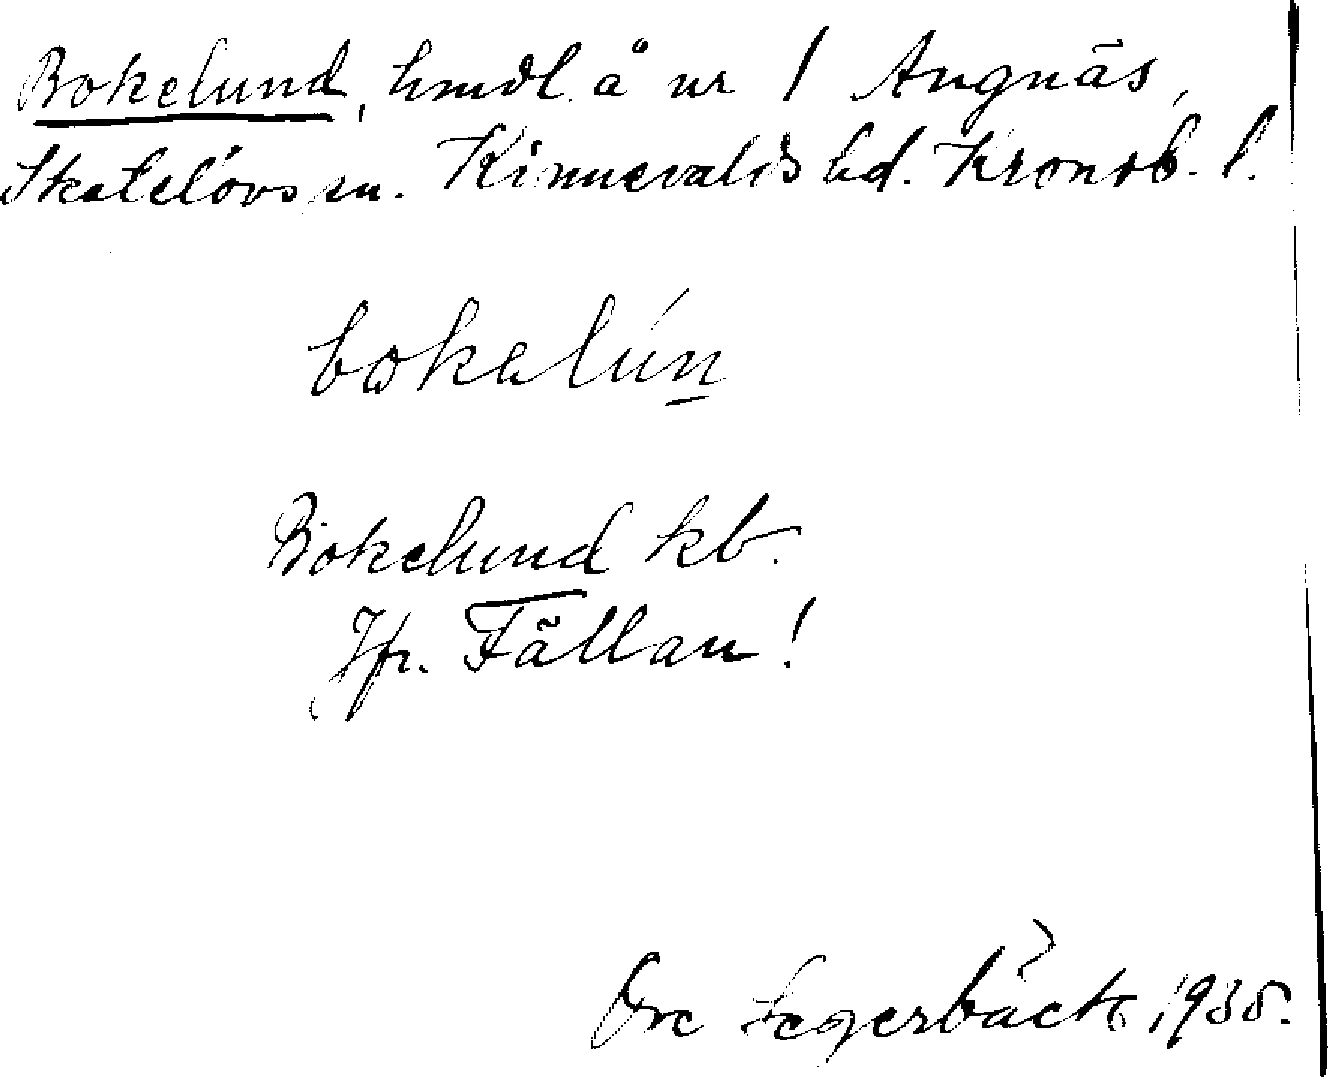 Bokelund, hmdl. å nr 1 Angnäs,
Skatelövs sn. Kinnevalds hd. Kronob. l.
bokalún
Bokelund kb.
Jfr. Fällan!
Ove Segerbäck 1935.